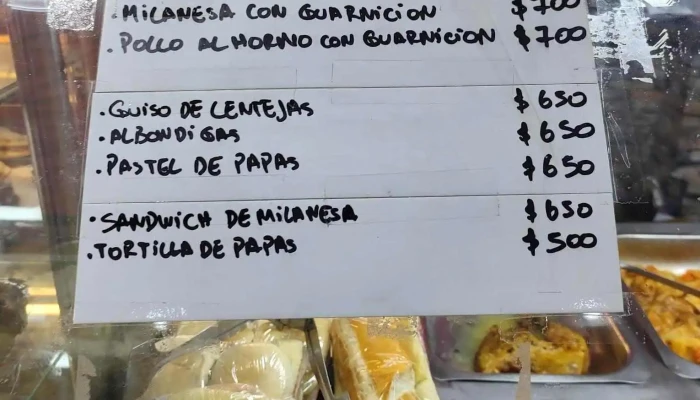 . MILANESA CON GUARNICION $ 700
. POLLO AL HORNO CON GUARNICION $ 700
. GUISO DE LENTEJAS $ 650
. ALBONDIGAS $ 650
. PASTEL DE PAPAS $ 650
. SANDWICH DE MILANESA $ 650
. TORTILLA DE PAPAS $ 500